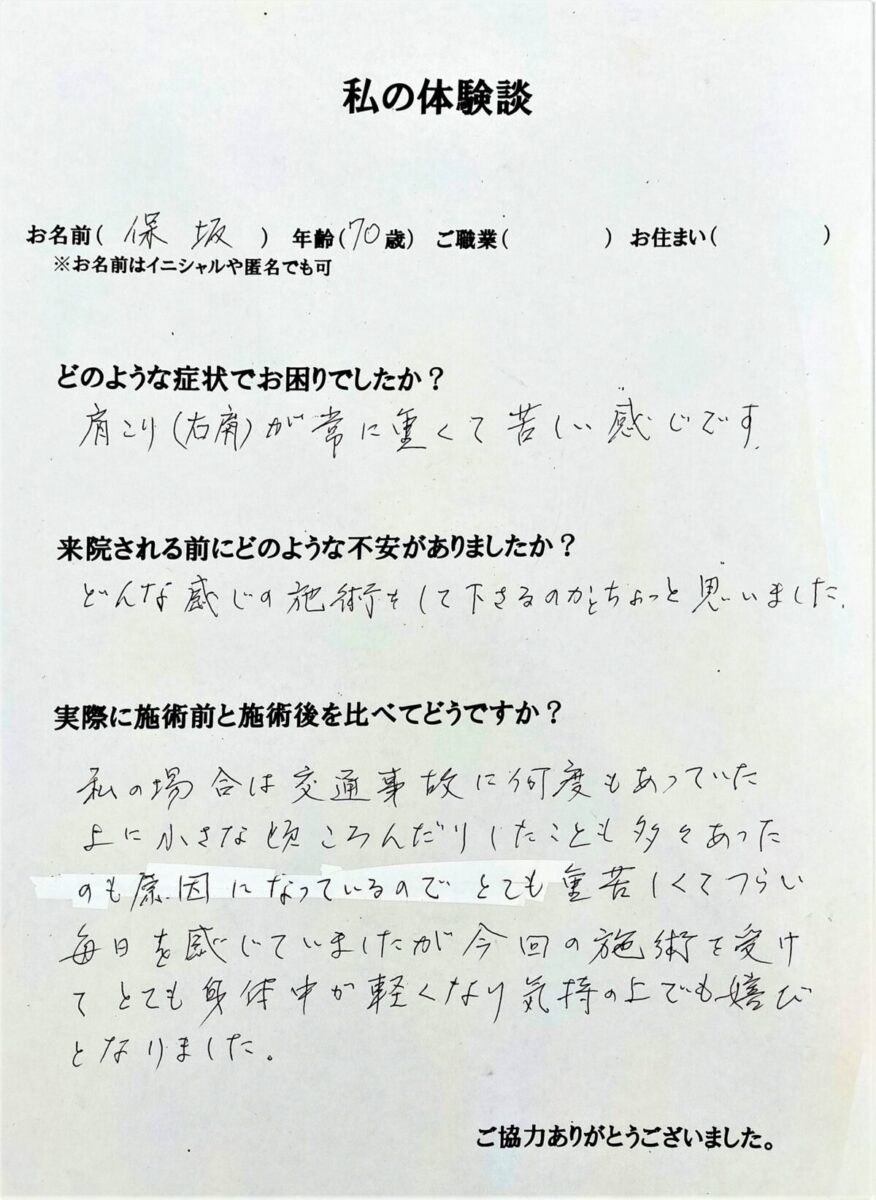 私の体験談
お名前( 保坂 ) 年齢(70歳) ご職業( ) お住まい( )
※お名前はイニシャルや匿名でも可
どのような症状でお困りでしたか？
肩こり(右肩)が常に重くて苦しい感じです.
来院される前にどのような不安がありましたか？
どんな感じの施術をして下さるのかとちょっと思いました.
実際に施術前と施術後を比べてどうですか？
私の場合は交通事故に何度もあっていた
上に小さな頃ころんだりしたことも多々あった
のも原因になっているのでとても重苦しくてつらい
毎日を感じていましたが今回の施術を受け
てとても身体中が軽くなり気持の上でも嬉び
となりました。
ご協力ありがとうございました。